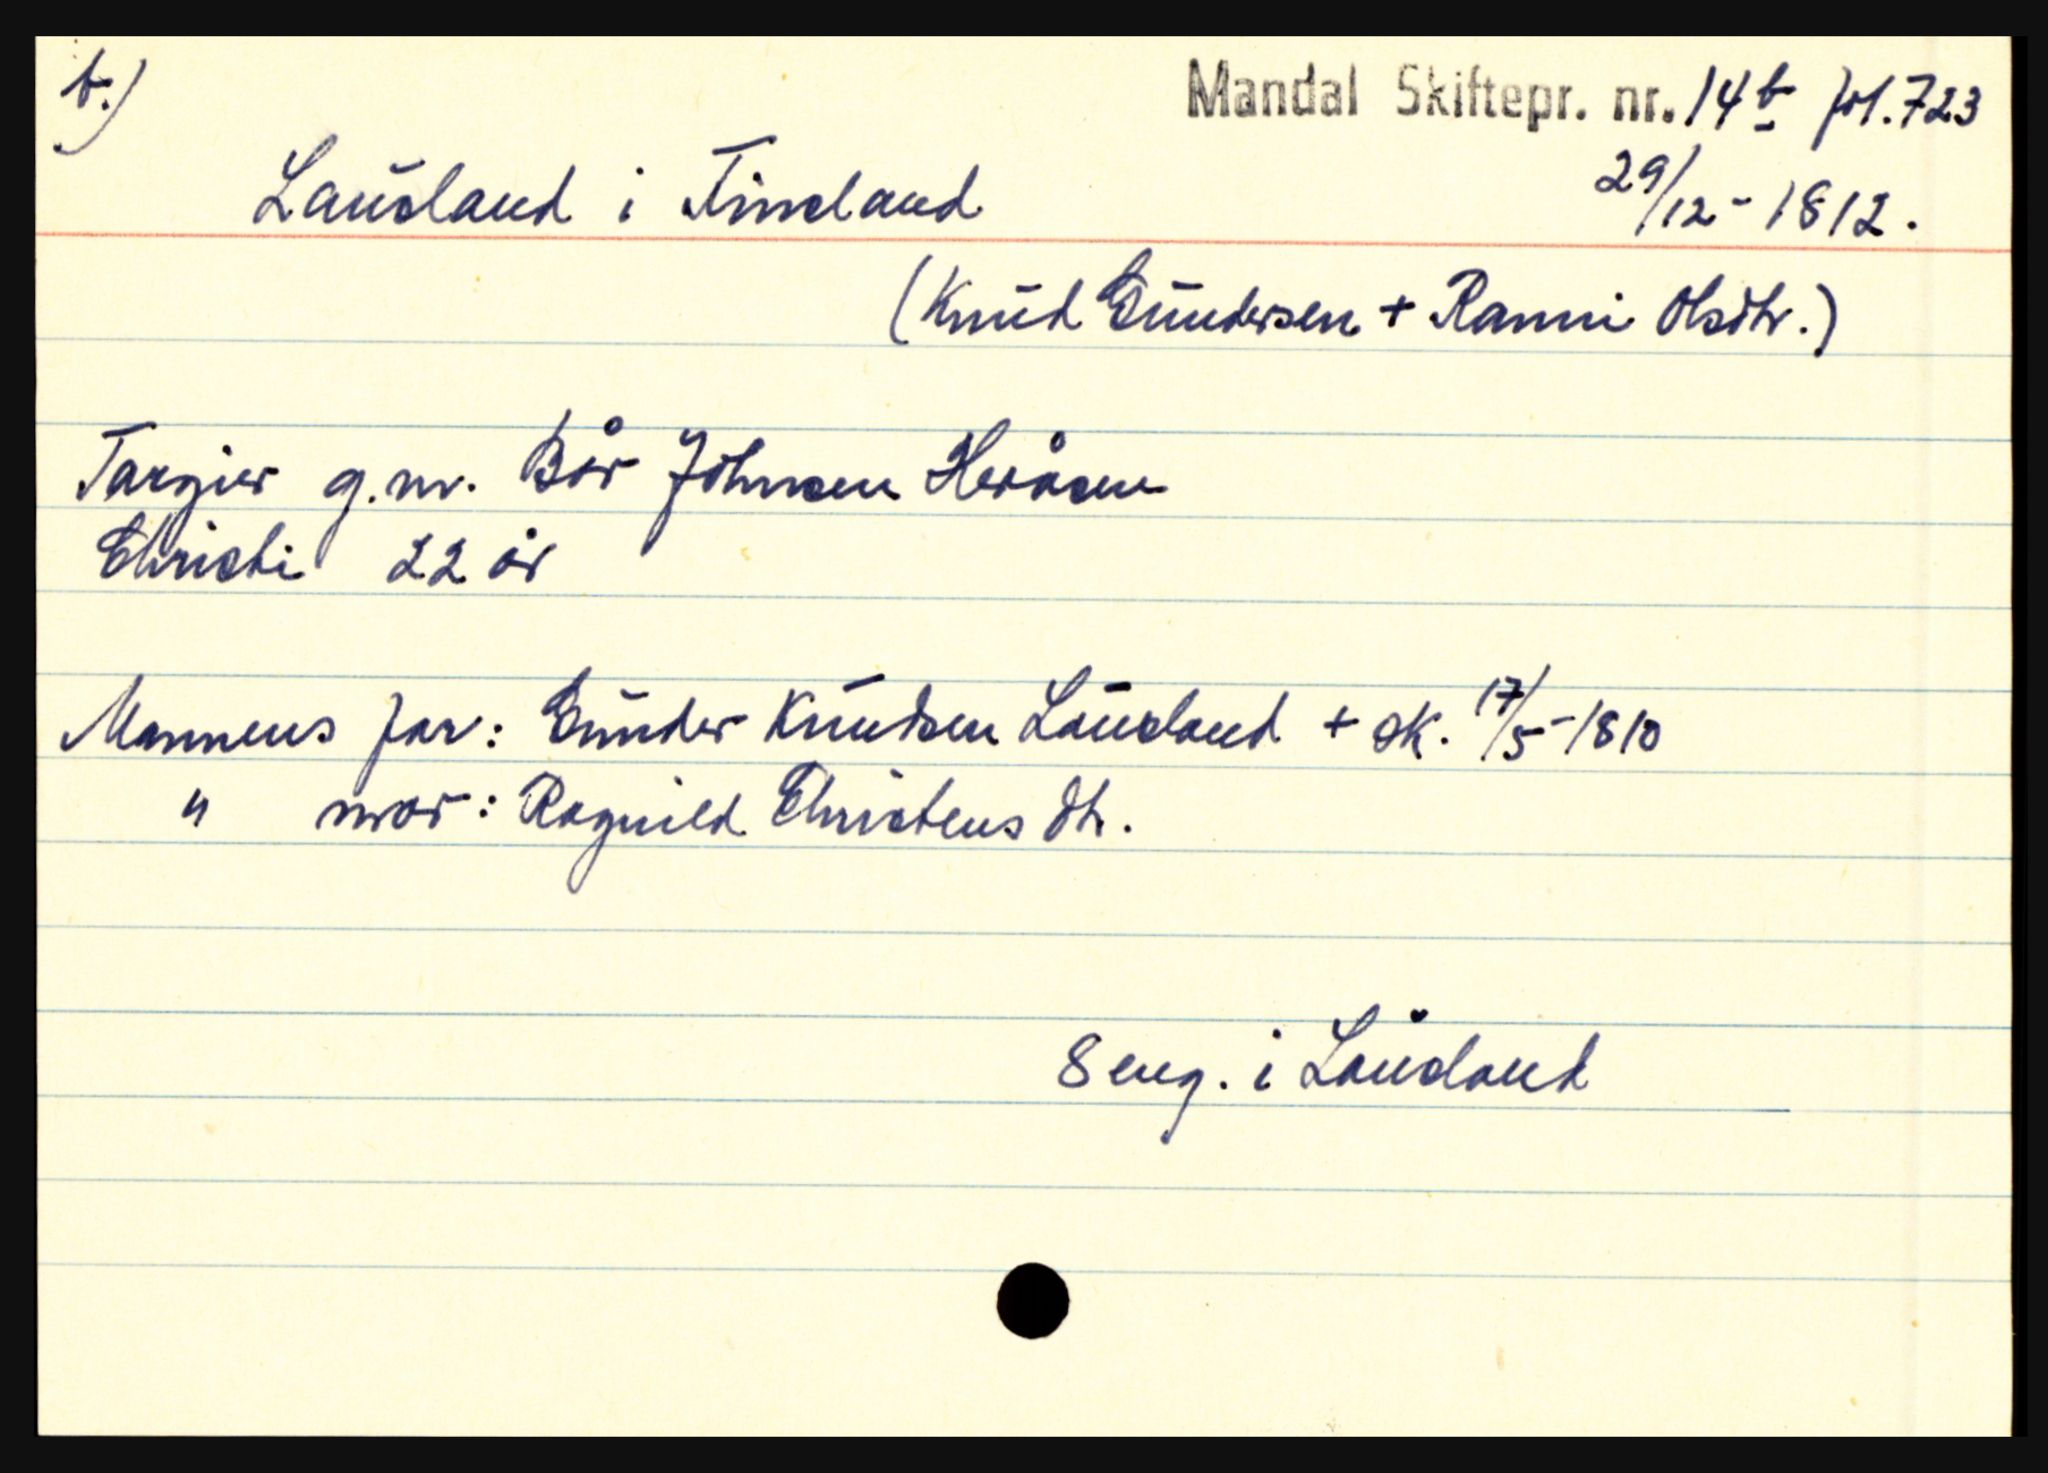 b.)
Mandal Skiftepr. nr. 14b fol. 723
Lausland i Finsland
29/12 - 1812.
(Knud Gundersen + Ranni Olsdtr.)
Targier g.m. Bår Johnsen Heråsen
Christi 22 år
Mannens far: Gunder Knudsen Lausland + sk. 17/5-1810
" mor: Ragnild Christensdtr.
8 eng. i Lausland